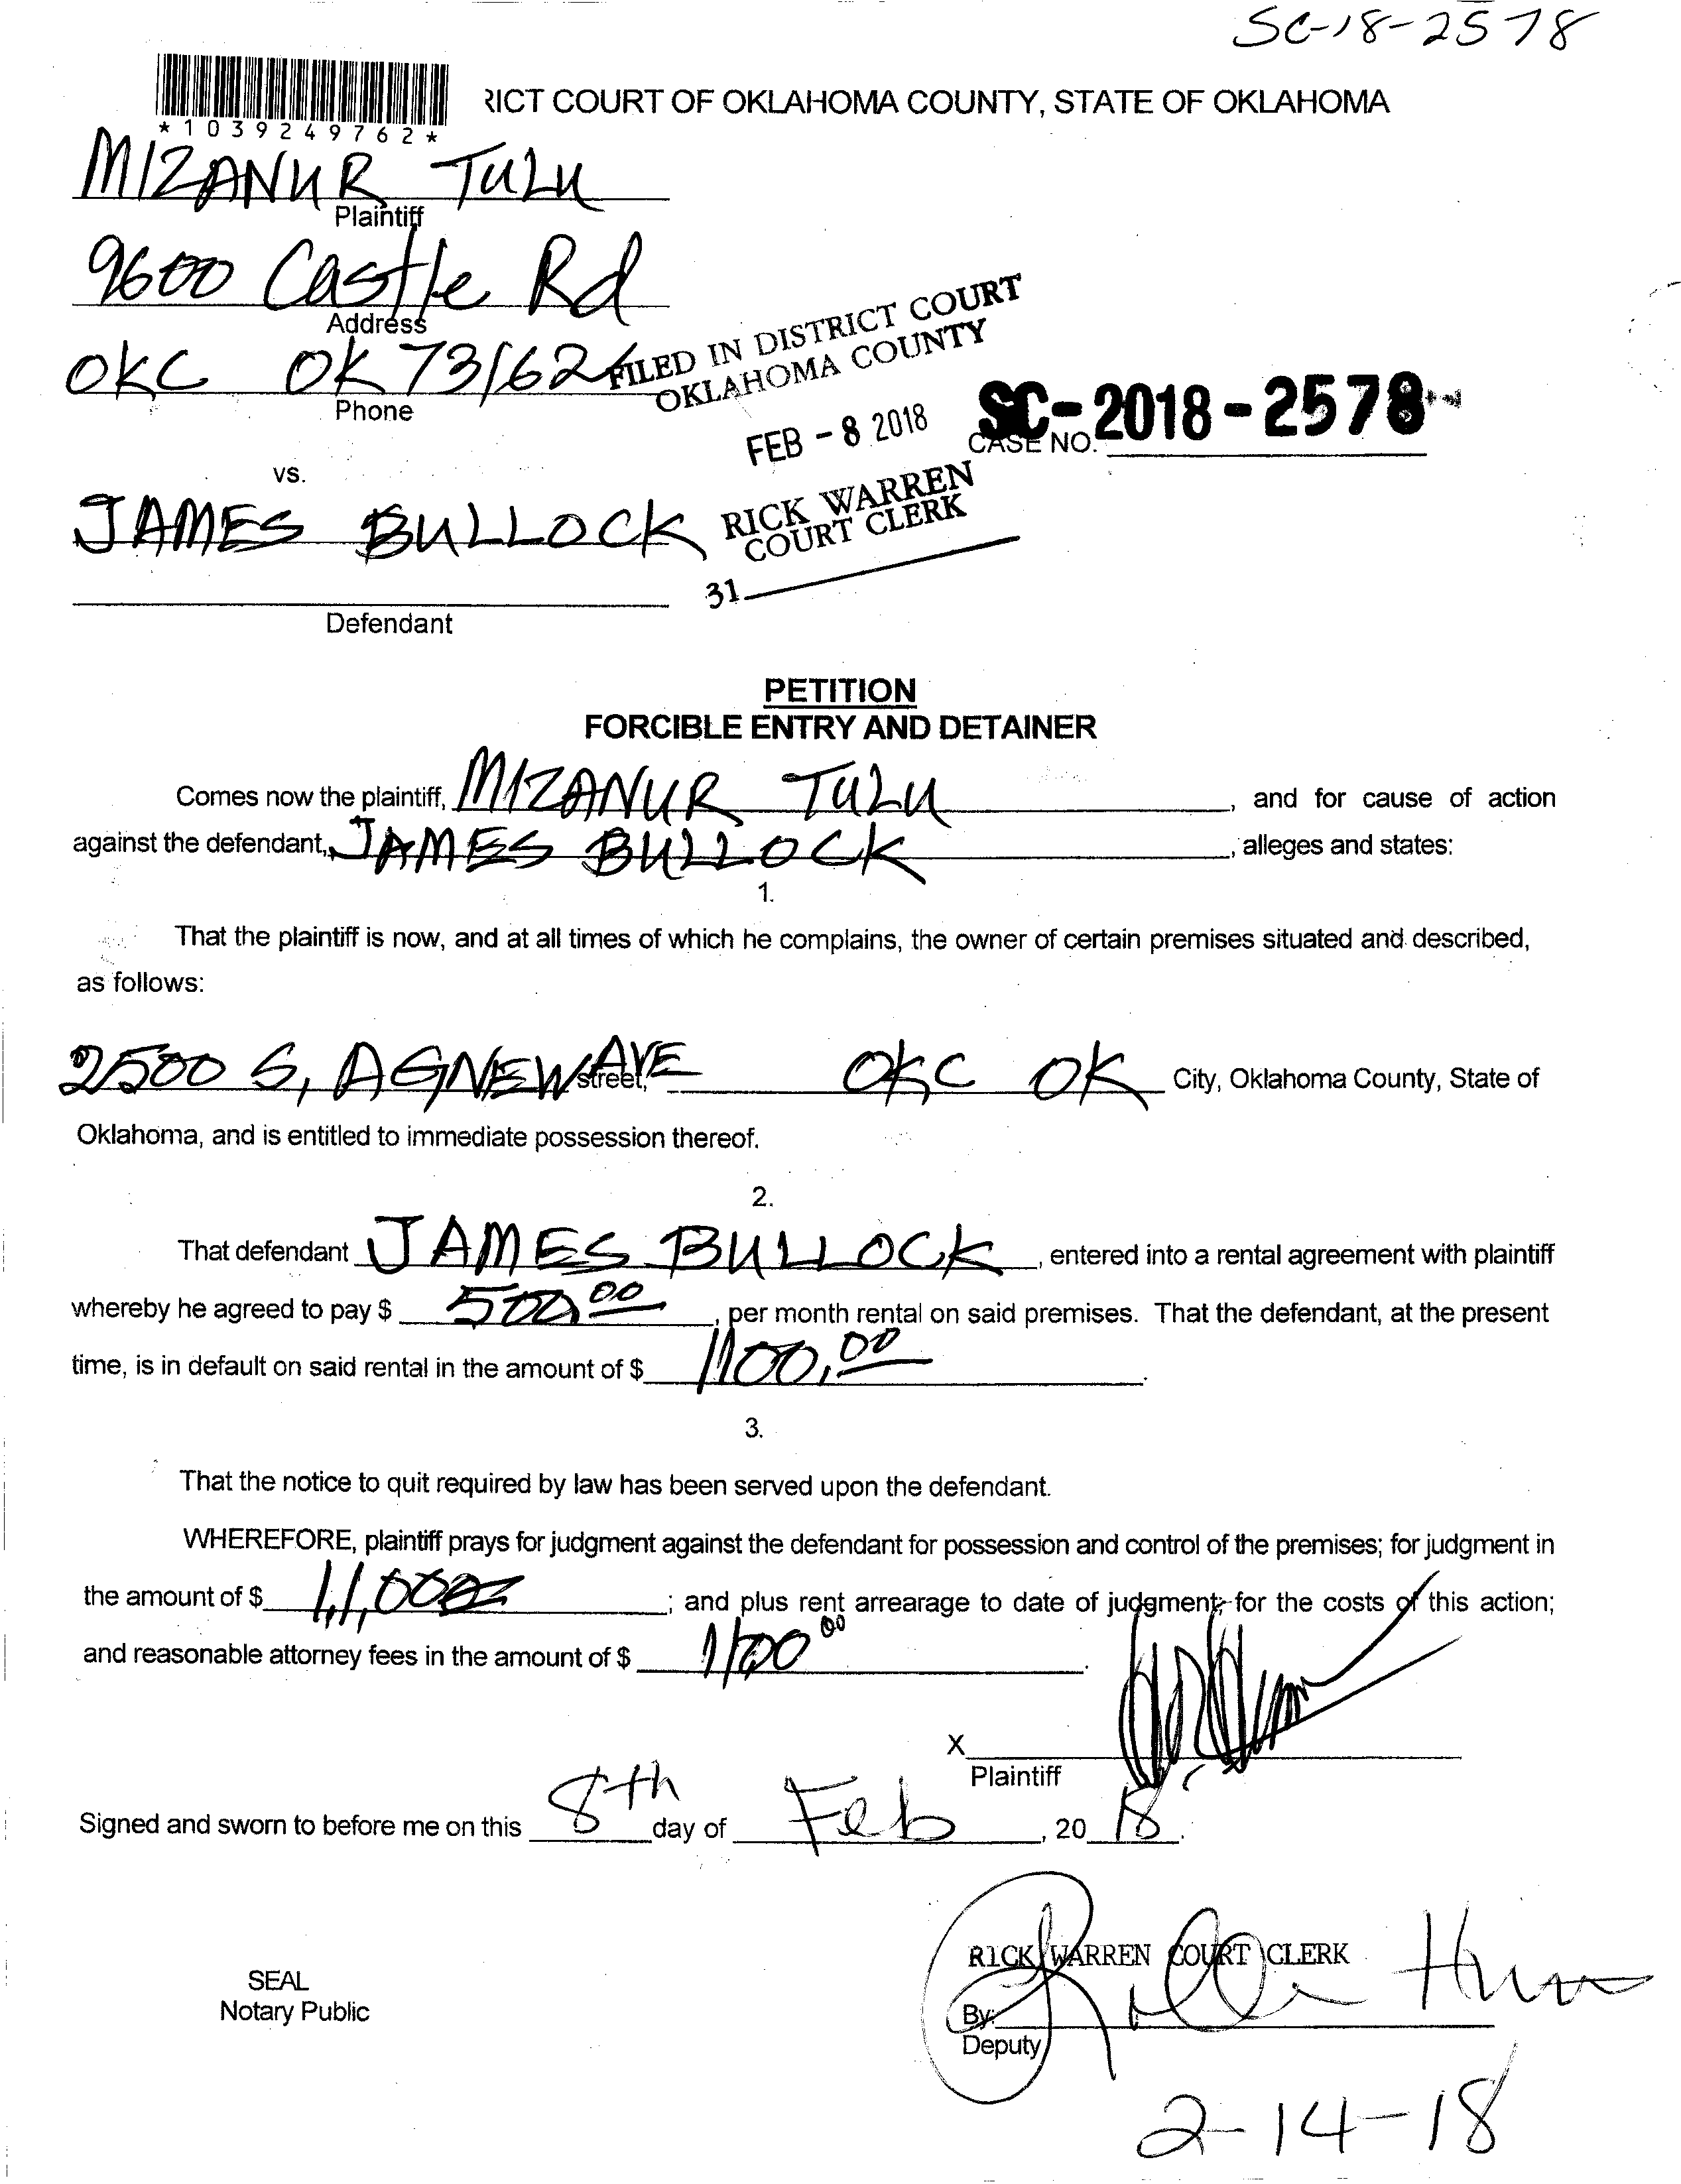 SC-18-2578
*1039249762*
RICT COURT OF OKLAHOMA COUNTY, STATE OF OKLAHOMA
MIZANUR TULU
Plaintiff
9600 Castle Rd
Address
OKC OK 73162
Phone
FILED IN DISTRICT COURT
OKLAHOMA COUNTY
FEB - 8 2018
SC-2018-2578
CASE NO.
vs.
JAMES BULLOCK
RICK WARREN
COURT CLERK
31
Defendant
PETITION
FORCIBLE ENTRY AND DETAINER
Comes now the plaintiff, MIZANUR TULU, and for cause of action
against the defendant, JAMES BULLOCK, alleges and states:
1.
That the plaintiff is now, and at all times of which he complains, the owner of certain premises situated and described,
as follows:
2500 S, AGNEW AVE street, OKC OK City, Oklahoma County, State of
Oklahoma, and is entitled to immediate possession thereof.
2.
That defendant JAMES BULLOCK, entered into a rental agreement with plaintiff
whereby he agreed to pay $ 500 00, per month rental on said premises. That the defendant, at the present
time, is in default on said rental in the amount of $ 1100.00.
3.
That the notice to quit required by law has been served upon the defendant.
WHEREFORE, plaintiff prays for judgment against the defendant for possession and control of the premises; for judgment in
the amount of $ ; and plus rent arrearage to date of judgment; for the costs of this action;
and reasonable attorney fees in the amount of $ 1100 00.
X
Plaintiff
Signed and sworn to before me on this 8th day of Feb, 20 18.
RICK WARREN COURT CLERK
SEAL
Notary Public
By:
Deputy
2-14-18